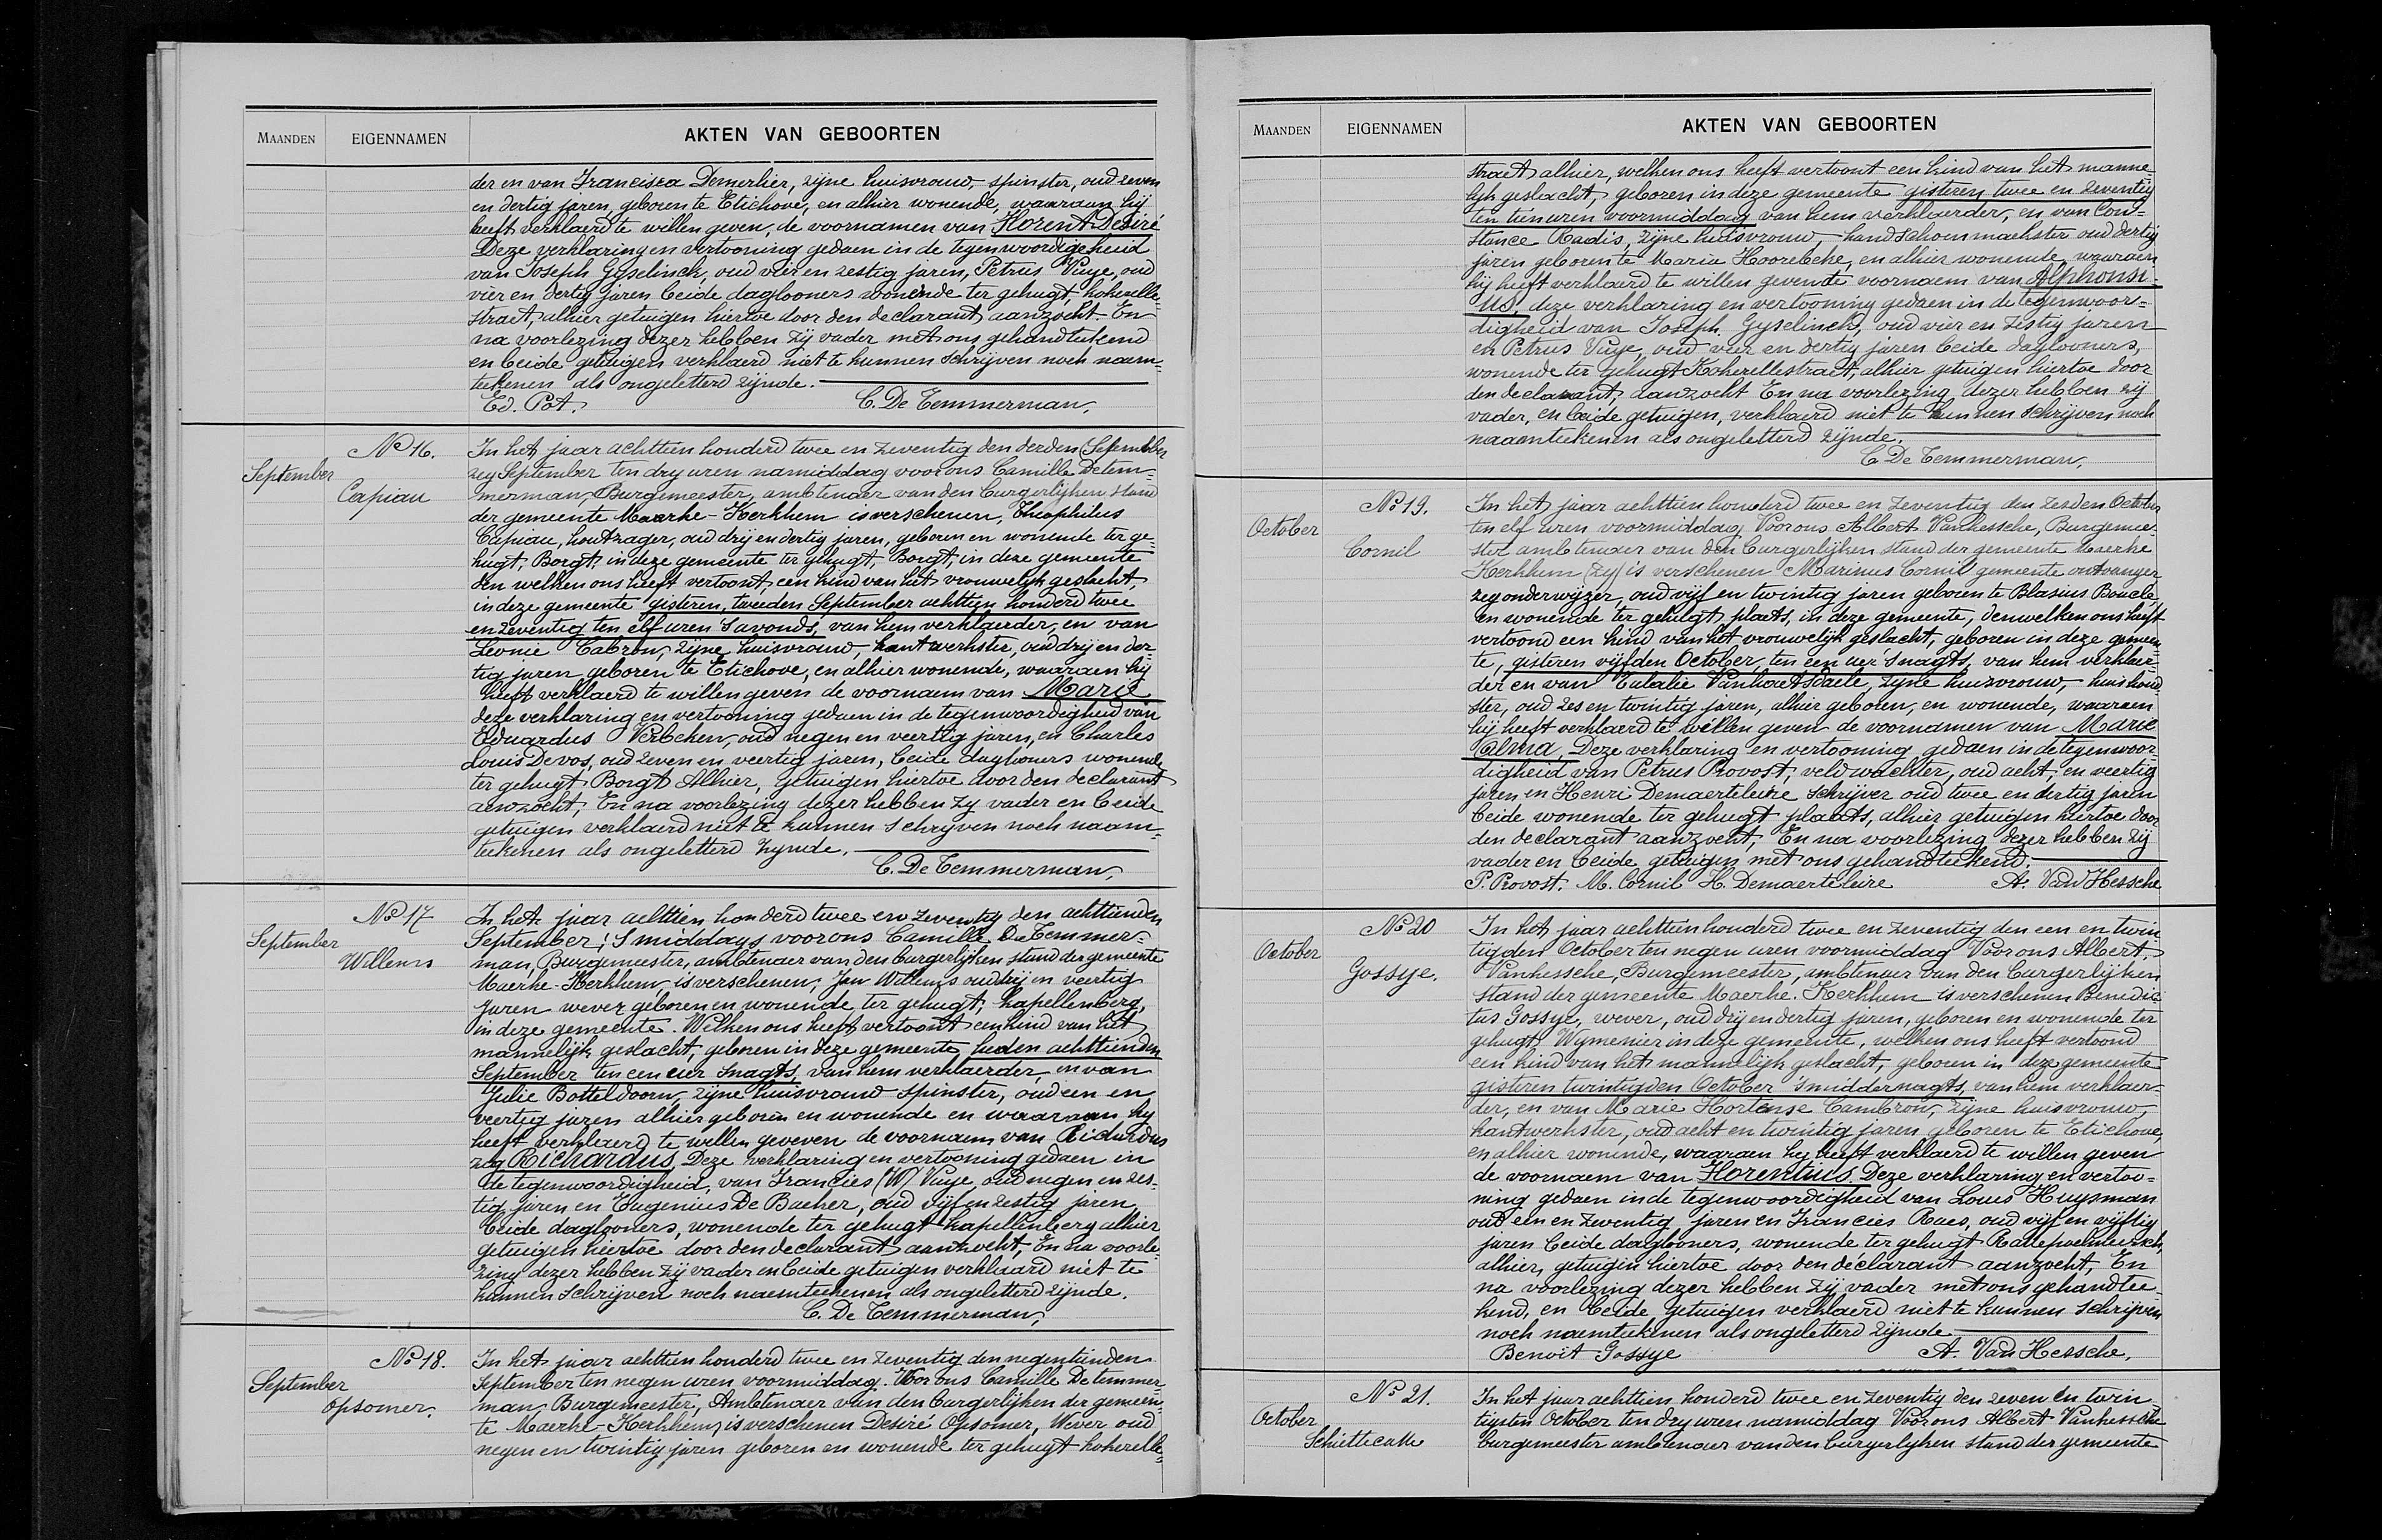 MAANDEN EIGENNAMEN AKTEN VAN GEBOORTEN
der en van Francisca Demerlier, zijne huisvrouw, spinster, oud zeven
en dertig jaren, geboren te Etichove, en alhier wonende, waaraan hij
heeft verklaerd te willen geven, de voornamen van Florent Desiré
Deze verklaring en vertooning gedaen in de tegenwoordigeheid
van Joseph Gyselinck, oud vier en zestig jaren, Petrus Vuye, oud
vier en dertig jaren beide daglooners wonende ter gehugt, kokerelle-
straet, alhier getuigen hiertoe door den declarant aanzocht. En
na voorlezing dezer hebben zij vader met ons gehandteekend
en beide getuigen verklaerd niet te kunnen schrijven noch naam-
teekenen als ongeletterd zijnde.
Ed. Pot. C. De Temmerman,
No 16.
September
Capiau
In het jaar achttien honderd twee en zeventig den derden (September
zeg September ten dry uren namiddag voor ons Camille Detem-
merman, Burgemeester, ambtenaer van den burgerlijken stand
der gemeente Maerke-Kerkhem is verschenen, Theophilus
Capiau, houtzager, oud drij en dertig jaren, geboren en wonende ter ge-
hugt, Borgt, in deze gemeente ter gehugt, Borgt, in deze gemeente
den welken ons heeft vertoont, een kind van het vrouwelijk geslacht,
in deze gemeente gisteren, tweeden September achttien honderd twee
en zeventig ten elf uren 's avonds, van hem verklaerder, en van
Leonie Cabron, zijne huisvrouw, kantwerkster, oud drij en der-
tig jaren, geboren te Etichove, en alhier wonende, waaraen hij
heeft verklaerd te willen geven de voornaem van Marie
deze verklaring en vertooning gedaen in de tegenwoordigheid van
Eduardus Verbeken, oud negen en veertig jaren, en Charles
Louis Devos, oud zeven en veertig jaren, beide daglooners wonende
ter gehugt Borgt Alhier, getuigen hiertoe door den declarant
aenzocht, En na voorlezing dezer hebben zy vader en beide
getuigen verklaerd niet te kunnen schryven noch naam-
teekenen als ongeletterd zynde.
C. De Temmerman,
No 17
September
Willems
In het jaar achttien honderd twee en zeventig den achttienden
September, 's middags voor ons Camille De Temmer-
man, Burgemeester, ambtenaer van den burgerlijken stand der gemeente
Maerke-Kerkhem, is verschenen, Jan Willems oud drij en veertig
Jaren wever geboren en wonende ter gehugt, kapellenberg,
in deze gemeente. Welken ons heeft vertoont een kind van het
mannelijk geslacht, geboren in deze gemeente heden achttienden
September ten een uer snagts, van hem verklaerder, en van
Julie Botteldoorn, zijne huisvrouw spinster, oud een en
veertig jaren alhier geboren en wonende en waaraan hy
heeft verklaerd te willen geveven de voornaam van Ricardus
zeg Richardus, Deze verklaring en vertooning gedaen in
de tegenwoordigheid, van Francies (W) Vuye, oud negen en zes-
tig jaren en Eugenius De Backer, oud vijf en zestig jaren
beide daglooners, wonende ter gehugt kapellenberg alhier
getuigen hiertoe door den declarant aanzocht, En na voorle-
zing dezer hebben zij vader en beide getuigen verklaard niet te
kunnen schrijven noch naemteekenen als ongeletterd zijnde.
C. De Temmerman,
No 18.
September
Opsomer.
In het jaar achttien honderd twee en zeventig den negentienden
September ten negen uren voormiddag. Voor ons Camille Detemmer-
man, Burgemeester, Ambtenaer van den burgerlijken der gemeen-
te Maerke-Kerkhem, is verschenen Desiré Opsomer, Wever oud
negen en twintig jaren geboren en wonende ter gehugt kokerelle-
MAANDEN EIGENNAMEN AKTEN VAN GEBOORTEN
straet alhier, welken ons heeft vertoont een kind van het manne
lijk geslacht, geboren in deze gemeente gisteren, twee en zeventig
ten tien uren voormiddag van hem verklaerder, en van Con-
stance Radis, zijne huisvrouw, handschoenmaekster oud dertig
jaren geboren te Maria Hoorebeke, en alhier wonende, waaraen
hij heeft verklaerd te willen geven de voornaem van Alphonsi-
us, deze verklaring en vertooning gedaen in de tegenwoor-
digheid van Joseph Gyselinck, oud vier en zestig jaren
en Petrus Vuye, oud vier en dertig jaren beide daglooners,
wonende ter gehugt Kokerellestraet, alhier getuigen hiertoe door
den declarant, aanzocht En na voorlezing dezer hebben zij
vader, en beide getuigen, verklaerd niet te kunnen schrijven noch
naamteekenen als ongeletterd zijnde.
C De Temmerman,
No 19.
October
Cornil
In het jaar achttien honderd twee en zeventig den zesden October
ten elf uren voormiddag Voor ons Albert Vanhessche, Burgemee-
ster ambtenaer van den burgerlijken stand der gemeente Maerke
Kerkhem (zy) is verschenen Marinus Cornil gemeente ontvanger
zeg onderwijzer, oud vijf en twintig jaren geboren te Blasius Boucle,
en wonende ter gehugt, plaats, in deze gemeente, denwelken ons heeft
vertoond een kind van het vrouwelijk geslacht, geboren in deze gemeen-
te, gisteren vijfden October, ten een uer 's nagts, van hem verklaer-
der en van Eulalie Vanhoutsdaele, zijne huizvrouw, huishoud-
ster, oud zes en twintig jaren, alhier geboren, en wonende, waaraen
hij heeft verklaerd te willen geven de voornamen van Marie
Valma, Deze verklaring en vertooning gedaen in de tegenwoor-
digheid van Petrus Provost, veldwachter, oud acht en veertig
jaren en Henri Demaerteleire schrijver oud twee en dertig jaren
beide wonende ter gehugt plaats, alhier getuigen hiertoe door
den declarant aanzocht, En na voorlezing dezer hebben zij
vader en beide, getuigen met ons gehandteekend.
P. Provost. M. Cornil H. Demaerteleire A. Van Hessche
No 20
October
Gossye.
In het jaar achttien honderd twee en zeventig den een en twin
tigden October ten negen uren voormiddag Voor ons Albert
Vanhessche, Burgemeester, ambtenaer van den burgerlijken
stand der gemeente Maerke-Kerkhem is verschenen Benedic-
tus Gossye, wever, oud drij en dertig jaren, geboren en wonende ter
gehugt Wymenier in deze gemeente, welken ons heeft vertoond
een kind van het mannelijk geslacht, geboren in deze gemeente
gisteren twintigden October 's middernagts, van hem verklaer-
der, en van Marie Hortense Cambron, zijne huisvrouw,
kantwerkster, oud acht en twintig jaren geboren te Etichove,
en alhier wonende, waaraen hij heeft verklaerd te willen geven
de voornaem van Florentius. Deze verklaring en vertoo-
ning gedaen in de tegenwoordigheid van Louis Huysman
oud een en zeventig jaren en Francies Raes, oud vijf en vijftig
jaren beide daglooners, wonende ter gehugt
alhier, getuigen hiertoe door den declarant aanzocht, En
na voorlezing dezer hebben zij vader met ons gehandtee-
kend, en beide getuigen verklaerd niet te kunnen schrijven
noch naemteekenen als ongeletterd zijnde
Benoit Gossye A. Van Hessche.
No 21.
October
Schietlecatte
In het jaar achttien honderd twee en zeventig den zeven en twin-
tigsten October ten dry uren namiddag Voor ons Albert Vanhessche
burgemeester ambtenaer van den burgerlyken stand der gemeente